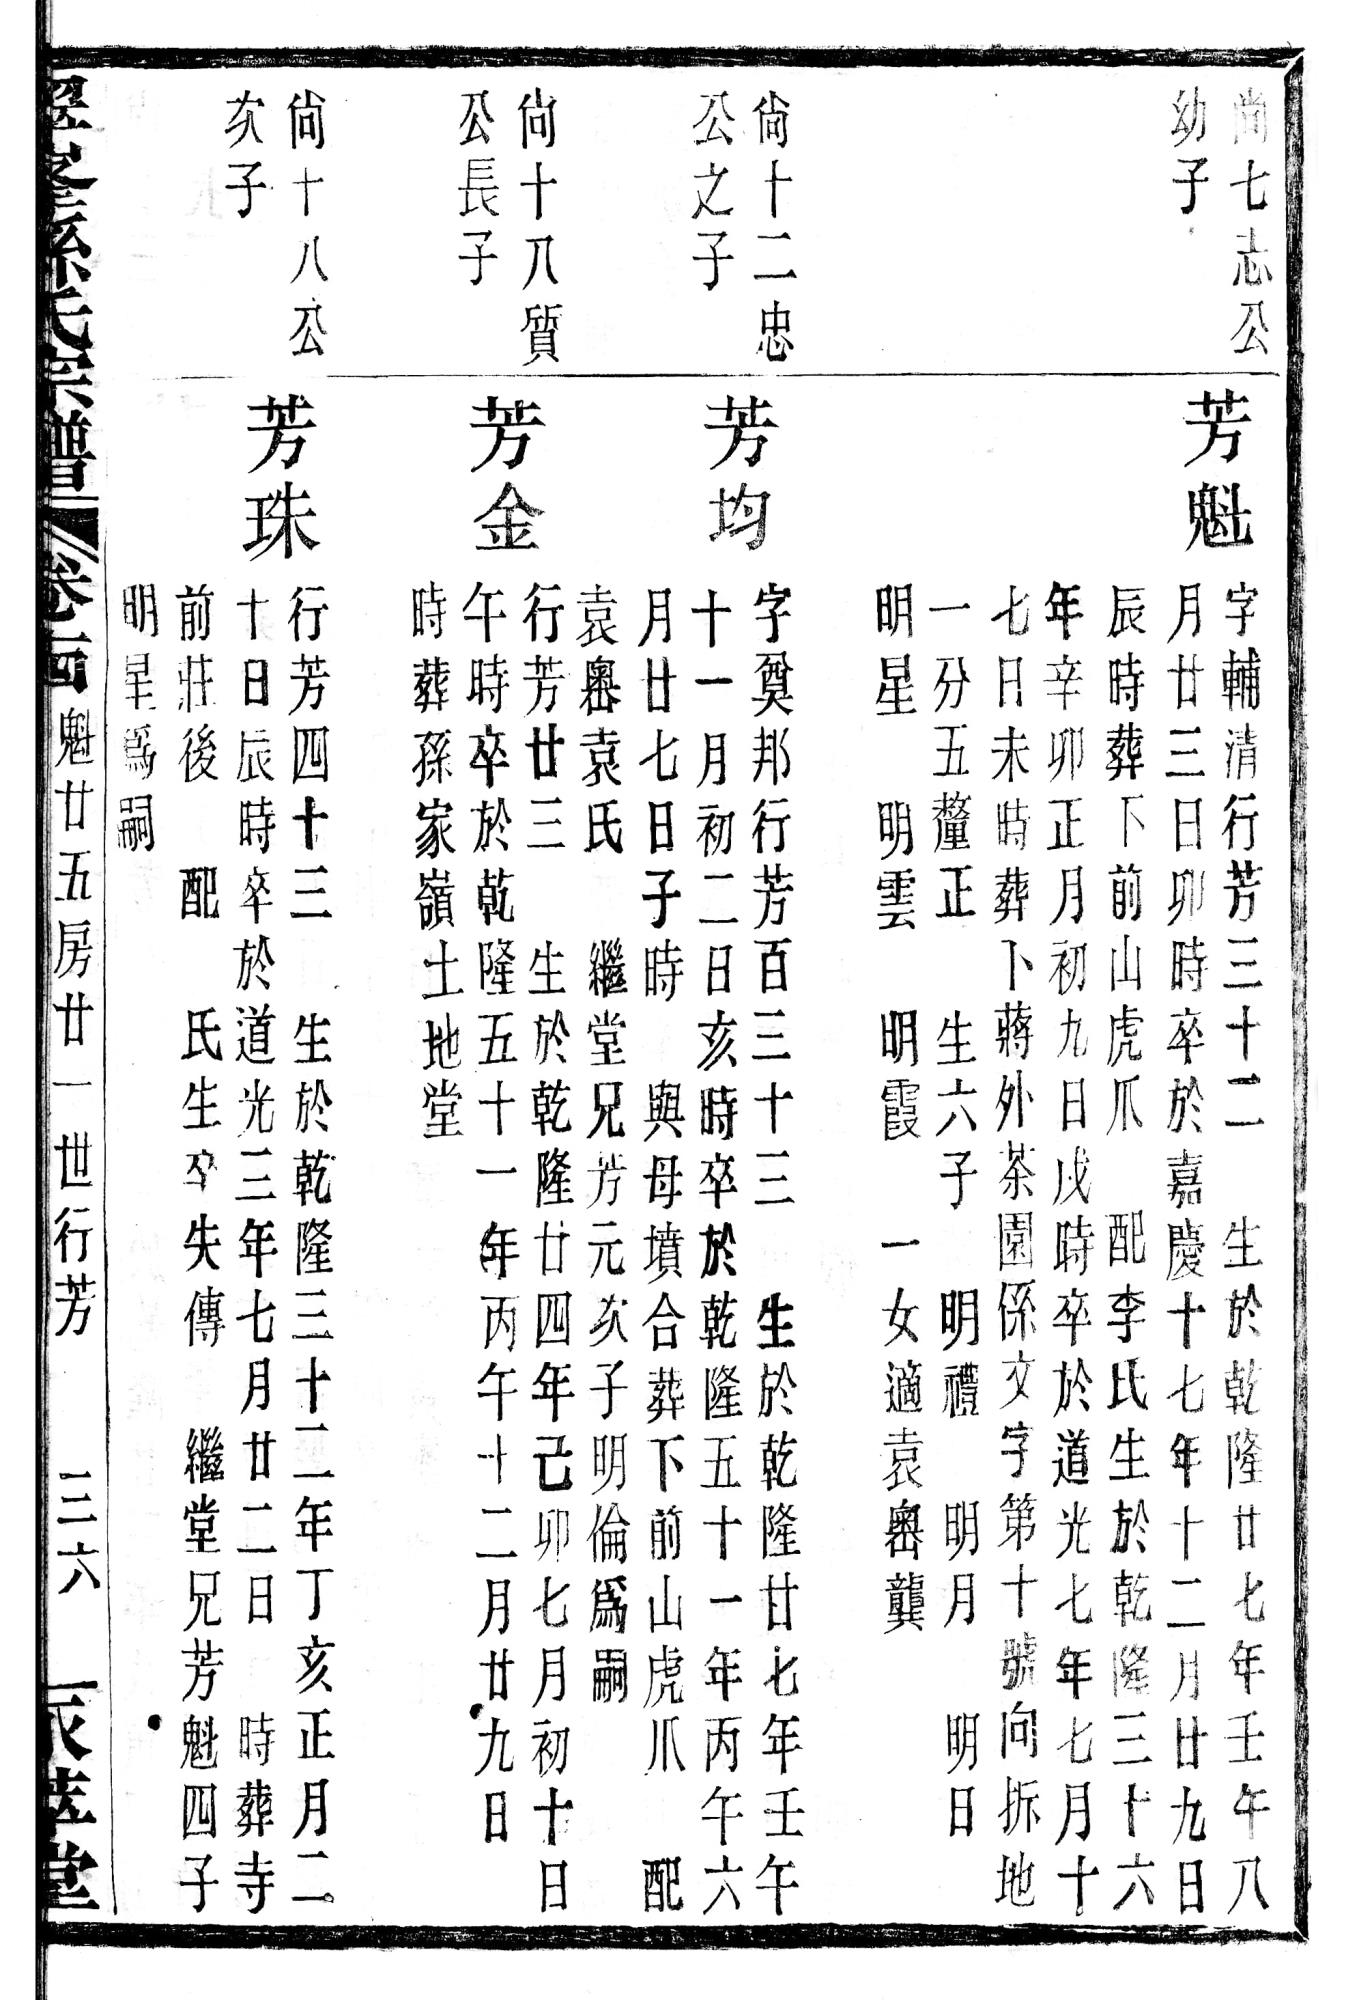 尙七志公
幼子
芳魁
字輔清行芳三十二　生於乾隆廿七年壬午八
月廿三日卯時卒於嘉慶十七年十二月廿九日
辰時葬下前山虎爪　配李氏生於乾隆三十六
年辛卯正月初九日戌時卒於道光七年七月十
七日未時葬卜蔣外茶園係文字第十號向拆地
一分五釐正　生六子　明禮　明月　明日
明星　明雲　明霞　一女適袁嶴龔
尙十二忠
公之子
芳均
字奠邦行芳百三十三　生於乾隆廿七年壬午
十一月初二日亥時卒於乾隆五十一年丙午六
月廿七日子時　與母墳合葬下前山虎爪　配
袁嶴袁氏　繼堂兄芳元次子明倫爲嗣
尙十八質
公長子
芳金
行芳廿三　生於乾隆廿四年己卯七月初十日
午時卒於乾隆五十一年丙午十二月廿九日
時葬孫家嶺土地堂
尙十八公
次子
芳珠
行芳四十三　生於乾隆三十二年丁亥正月二
十日辰時卒於道光三年七月廿二日　時葬寺
前莊後　配　氏生卒失傳　繼堂兄芳魁四子
明星爲嗣
孫氏宗譜　卷十四　魁廿五房廿一世行芳　三二六　萃堂